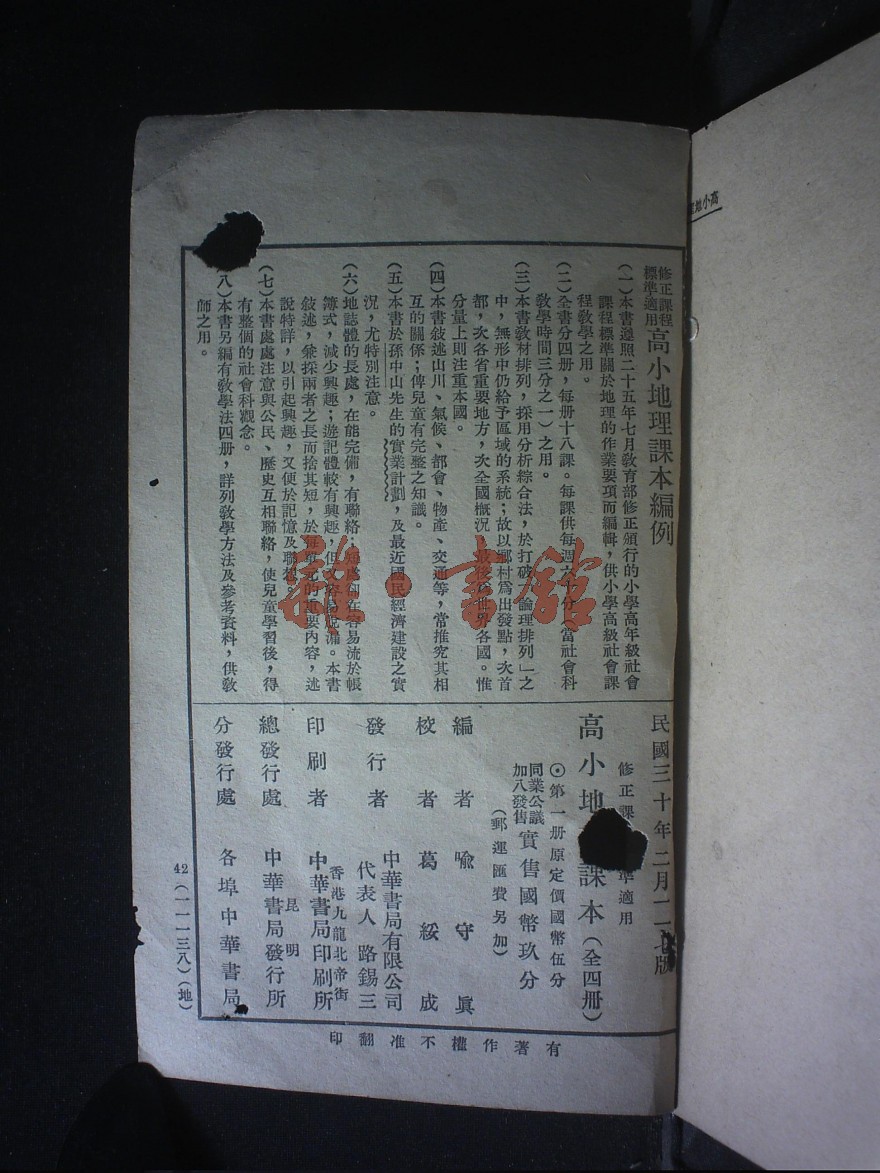 修正課程
標準適用
高小地理課本編例
（一）本書遵照二十五年七月教育部修正頒行的小學高年級社會
課程標準關於地理的作業要項而編輯，供小學高級社會課
程教學之用。
（二）全書分四册，每册十八課。每課供每週六十分（當社會科
教學時間三分之一）之用。
（三）本書教材排列，採用分析綜合法，於打破「論理排列」之
中，無形中仍給予區域的系統；故以鄉村爲出發點，次首
都，次各省重要地方，次全國概況，最後爲世界各國。惟
分量上則注重本國。
（四）本書敍述山川、氣候、都會、物產、交通等，常推究其相
互的關係；俾兒童有完整之知識。
（五）本書於孫中山先生的實業計劃，及最近國民經濟建設之實
況，尤特別注意。
（六）地誌體的長處，在能完備，有聯絡；短處却在容易流於帳
簿式，減少興趣；遊記體較有興趣，但又容易脫漏。本書
敍述，兼採兩者之長而捨其短，於每單元的重要內容，述
說特詳，以引起興趣，又便於記憶及聯想。
（七）本書處處注意與公民、歷史互相聯絡，使兒童學習後，得
有整個的社會科觀念。
八）本書另編有教學法四册，詳列教學方法及參考資料，供教
師之用。
民國三十年二月二七版
修正課 準適用
高小地 課本（全四册）
⊙第一册原定價國幣伍分
同業公議
加八發售
實售國幣玖分
（郵運匯費另加）
編者 喻守眞
校者 葛綏成
發行者 中華書局有限公司
代表人 路錫三
印刷者 香港九龍北帝街
中華書局印刷所
總發行處 昆明
中華書局發行所
分發行處 各埠中華書局
有著作權不准翻印
42（一一一三八）（地）
高小地
雜·書館